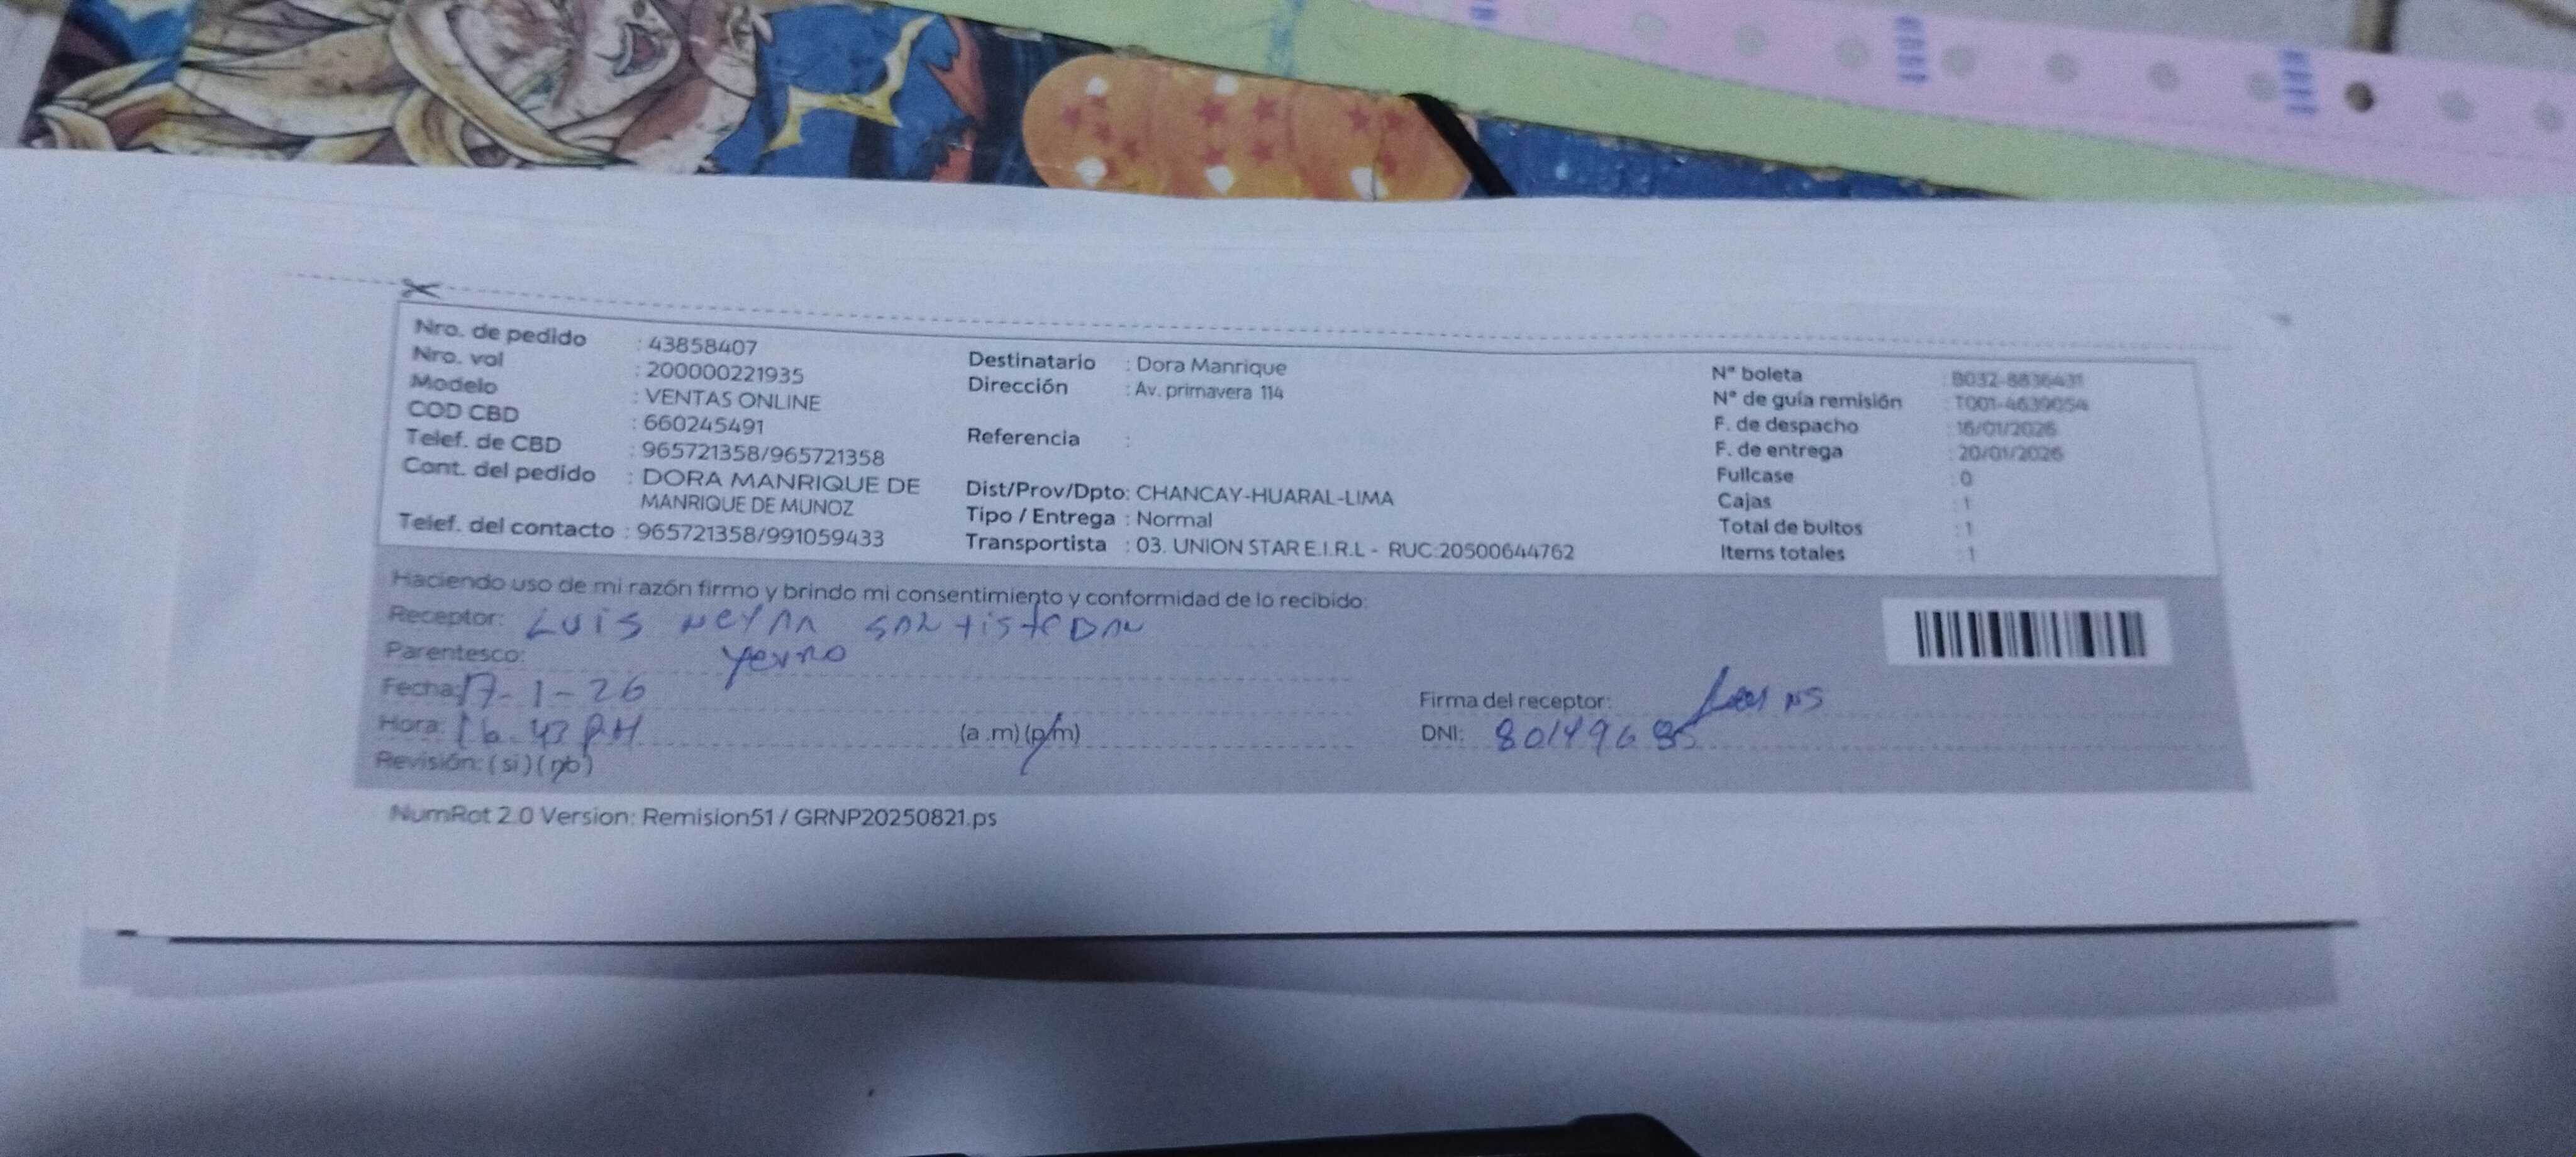 Nro. de pedido : 43858407
Nro. vol : 200000221935
Modelo : VENTAS ONLINE
COD CBD : 660245491
Telef. de CBD : 965721358/965721358
Cont. del pedido : DORA MANRIQUE DE
MANRIQUE DE MUNOZ
Telef. del contacto : 965721358/991059433
Destinatario : Dora Manrique
Dirección : Av. primavera 114
Referencia :
Dist/Prov/Dpto: CHANCAY-HUARAL-LIMA
Tipo / Entrega : Normal
Transportista : 03. UNION STAR E.I.R.L - RUC:20500644762
Nª boleta : B032-8836431
Nª de guía remisión : T001-4639054
F. de despacho : 16/01/2026
F. de entrega : 20/01/2026
Fullcase : 0
Cajas : 1
Total de bultos : 1
Items totales : 1
Haciendo uso de mi razón firmo y brindo mi consentimiento y conformidad de lo recibido:
Receptor: Luis Neyra
Parentesco: Yerno
Fecha: 17-1-26
Hora: 16.43 PM (a .m) (p/m)
Revisión: (si) (no)
Firma del receptor:
DNI: 80149685
NumRot 2.0 Version: Remision51 / GRNP20250821.ps